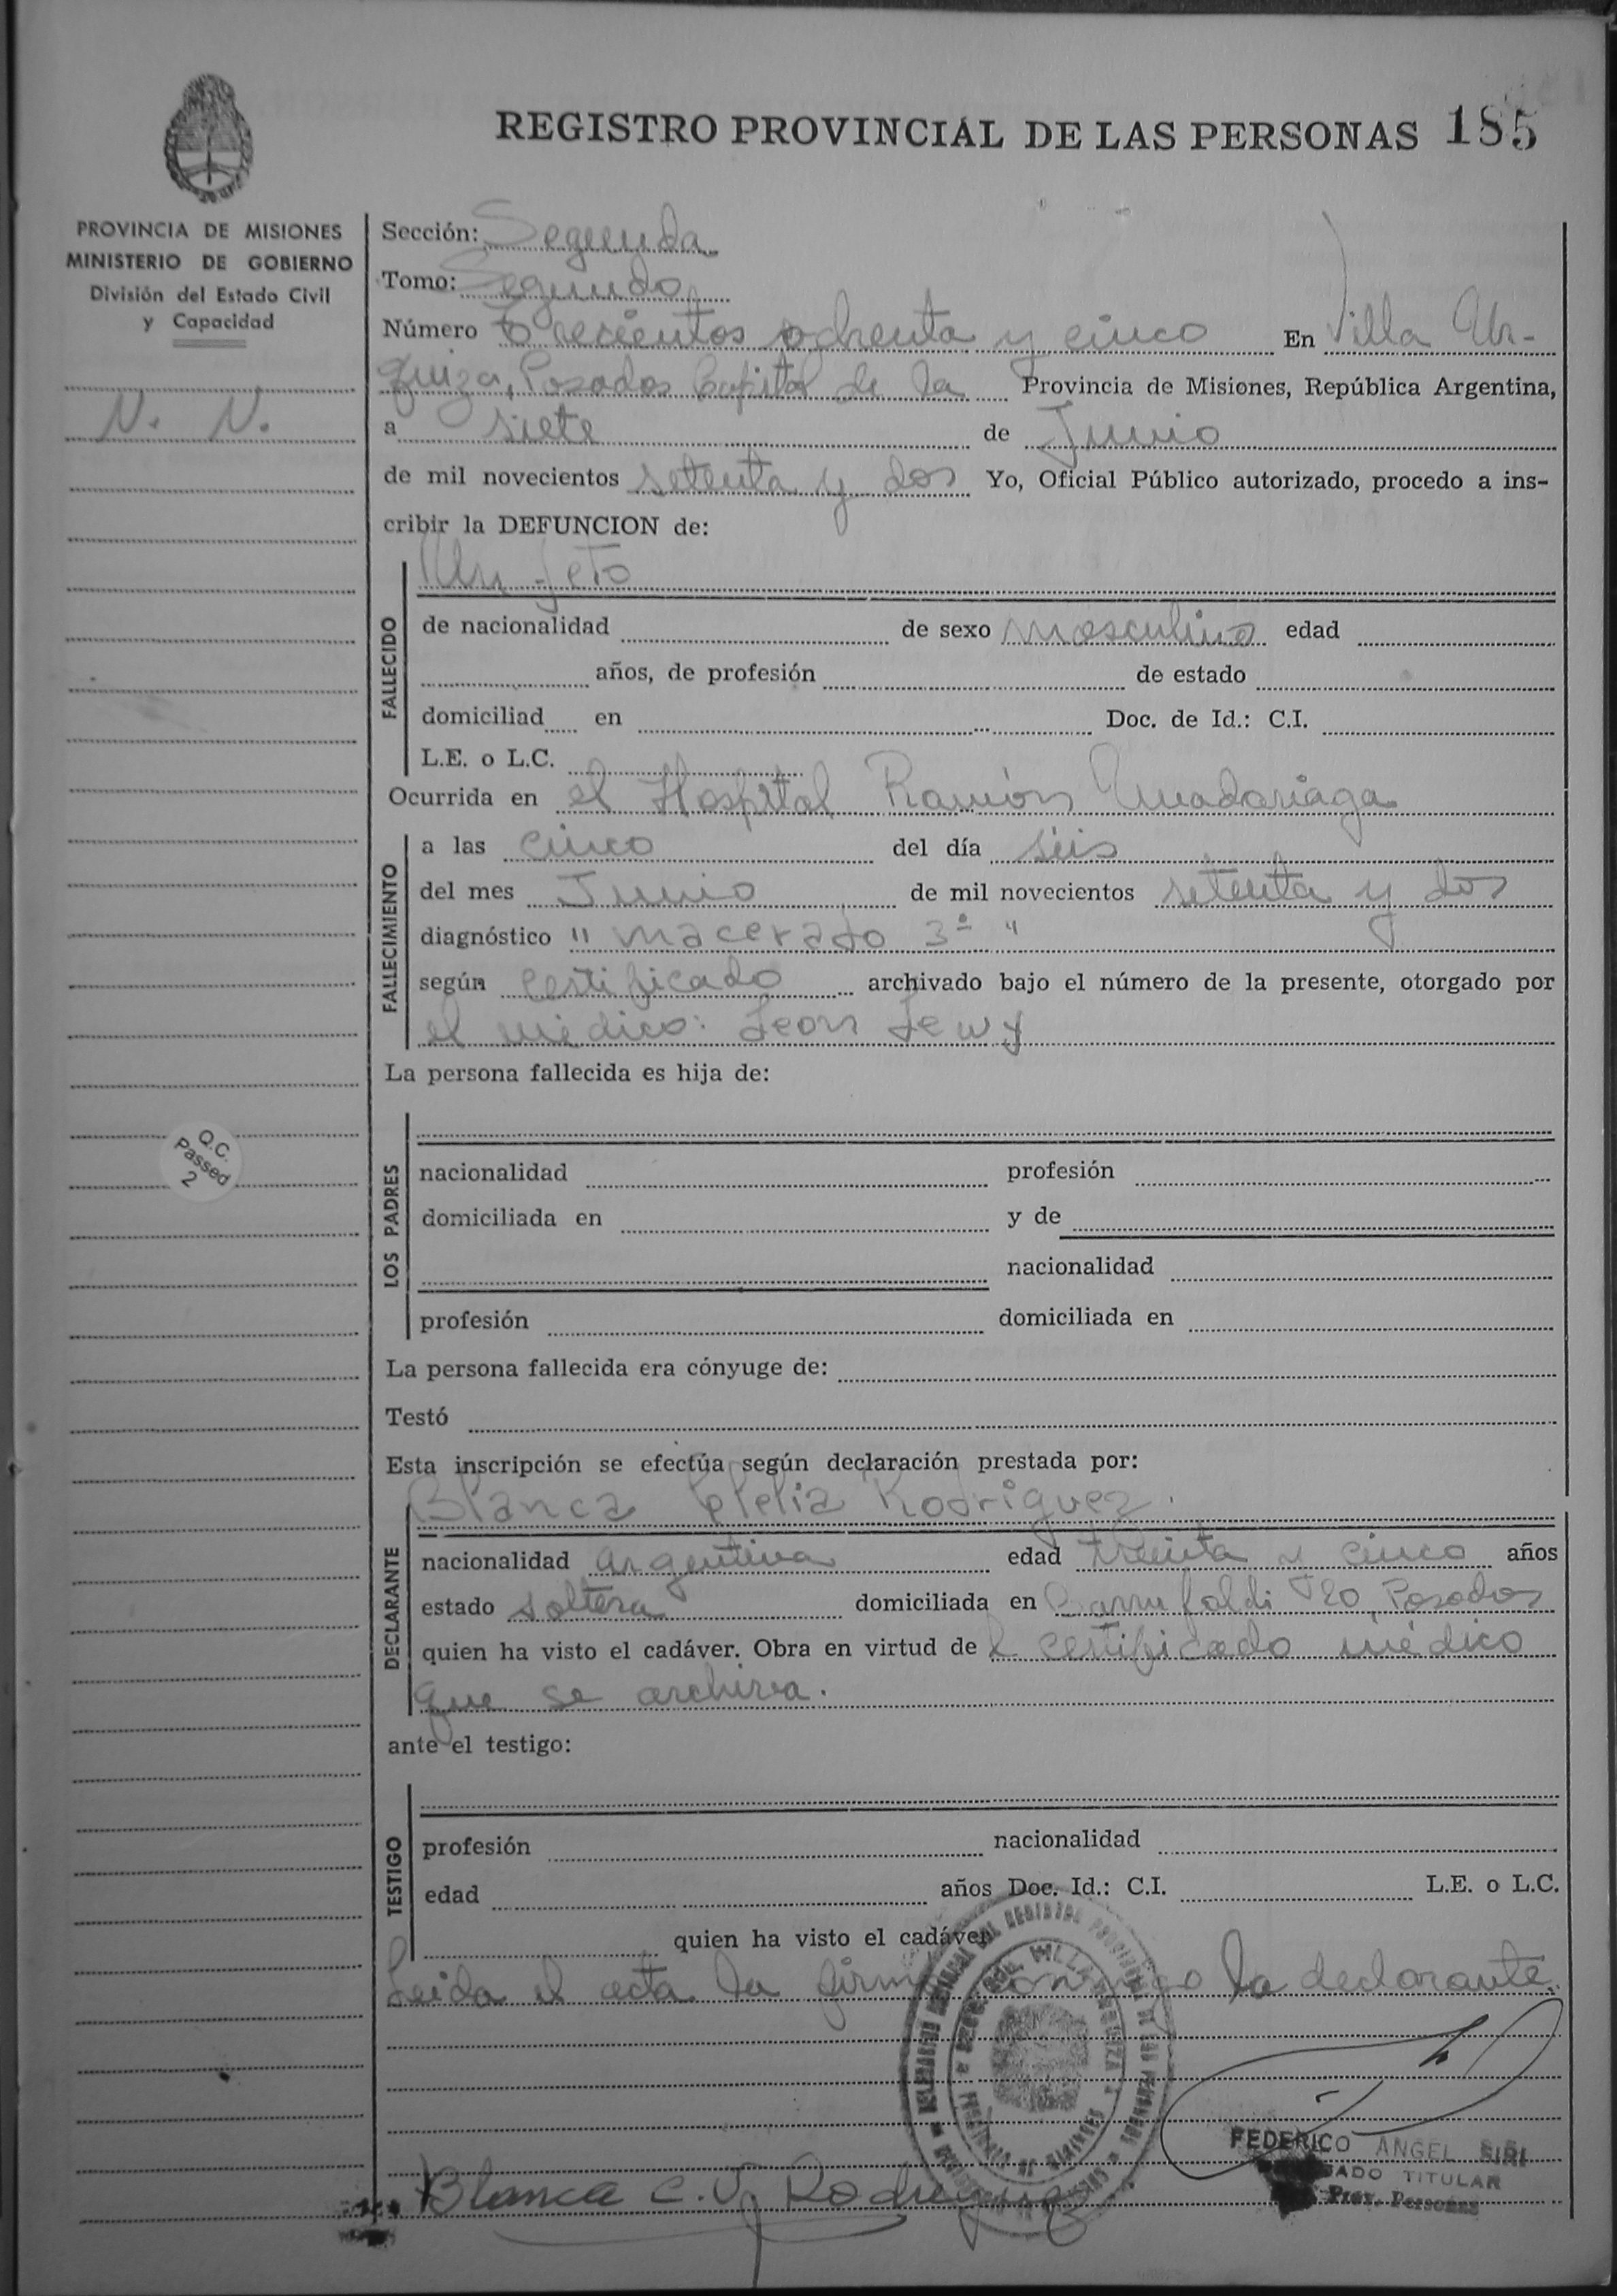 REGISTRO PROVINCIAL DE LAS PERSONAS 185
PROVINCIA DE MISIONES
MINISTERIO DE GOBIERNO
División del Estado Civil
y Capacidad
N. N.
Q.C.
Passed
2
Sección: Segunda
Tomo: Segundo
Número Trecientos ochenta y cinco En Villa Ur-
quiza, Posadas Capital de la Provincia de Misiones, República Argentina,
a siete de Junio
de mil novecientos setenta y dos Yo, Oficial Público autorizado, procedo a ins-
cribir la DEFUNCION de:
Un feto
FALLECIDO
de nacionalidad de sexo masculino edad
años, de profesión de estado
domiciliad en Doc. de Id.: C.I.
L.E. o L.C.
Ocurrida en el Hospital Ramón Madariaga
FALLECIMIENTO
a las cinco del día seis
del mes Junio de mil novecientos setenta y dos
diagnóstico "macerado 3º"
según certificado archivado bajo el número de la presente, otorgado por
el médico: Leon Lewy
La persona fallecida es hija de:
LOS PADRES
nacionalidad profesión
domiciliada en y de
nacionalidad
profesión domiciliada en
La persona fallecida era cónyuge de:
Testó
Esta inscripción se efectúa según declaración prestada por:
Blanca Clelia Rodriguez.
DECLARANTE
nacionalidad argentina edad treinta y cinco años
estado soltera domiciliada en Posadas
quien ha visto el cadáver. Obra en virtud del certificado médico
que se archiva.
ante el testigo:
TESTIGO
profesión nacionalidad
edad años Doc. Id.: C.I. L.E. o L.C.
quien ha visto el cadáver
Leida el acta la firma conmigo la declarante.
FEDERICO ANGEL SIRI
TITULAR
Prov. Personas
Blanca C. V. Rodriguez